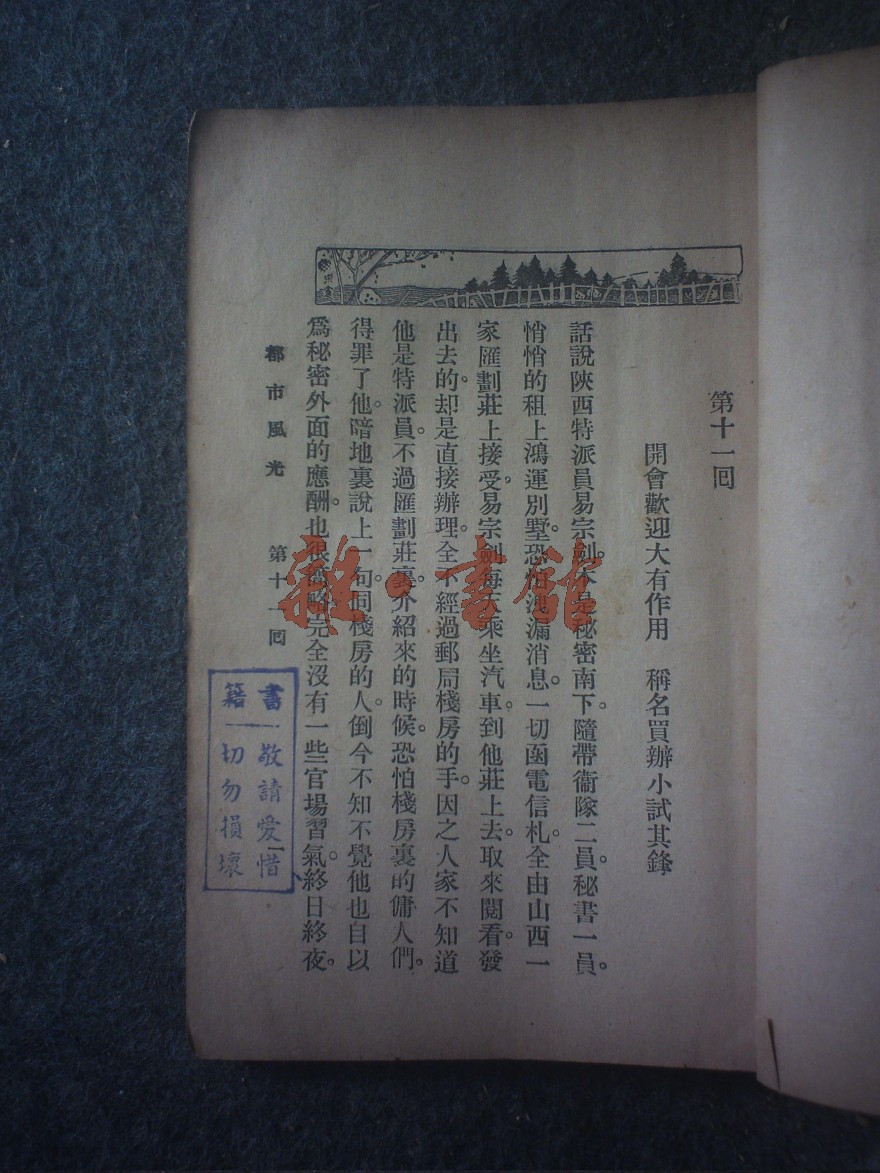 第十一回
開會歡迎大有作用　稱名買辦小試其鋒
話說陝西特派員易宗劍。本是秘密南下。隨帶衞隊二員。秘書一員。
悄悄的租上鴻運別墅。恐怕洩漏消息。一切函電信札。全由山西一
家匯劃莊上接受。易宗劍每天乘坐汽車。到他莊上去。取來閱看。發
出去的。却是直接辦理。全不經過郵局棧房的手。因之人家不知道
他是特派員。不過匯劃莊裏。介紹來的時候。恐怕棧房裏的傭人們。
得罪了他。暗地裏說上一句。同棧房的人。倒今不知不覺。他也自以
爲秘密。外面的應酬。也很 略。完全沒有一些官場習氣。終日終夜。
都市風光　第十一回
書籍
敬請愛惜
切勿損壞
雜·書館